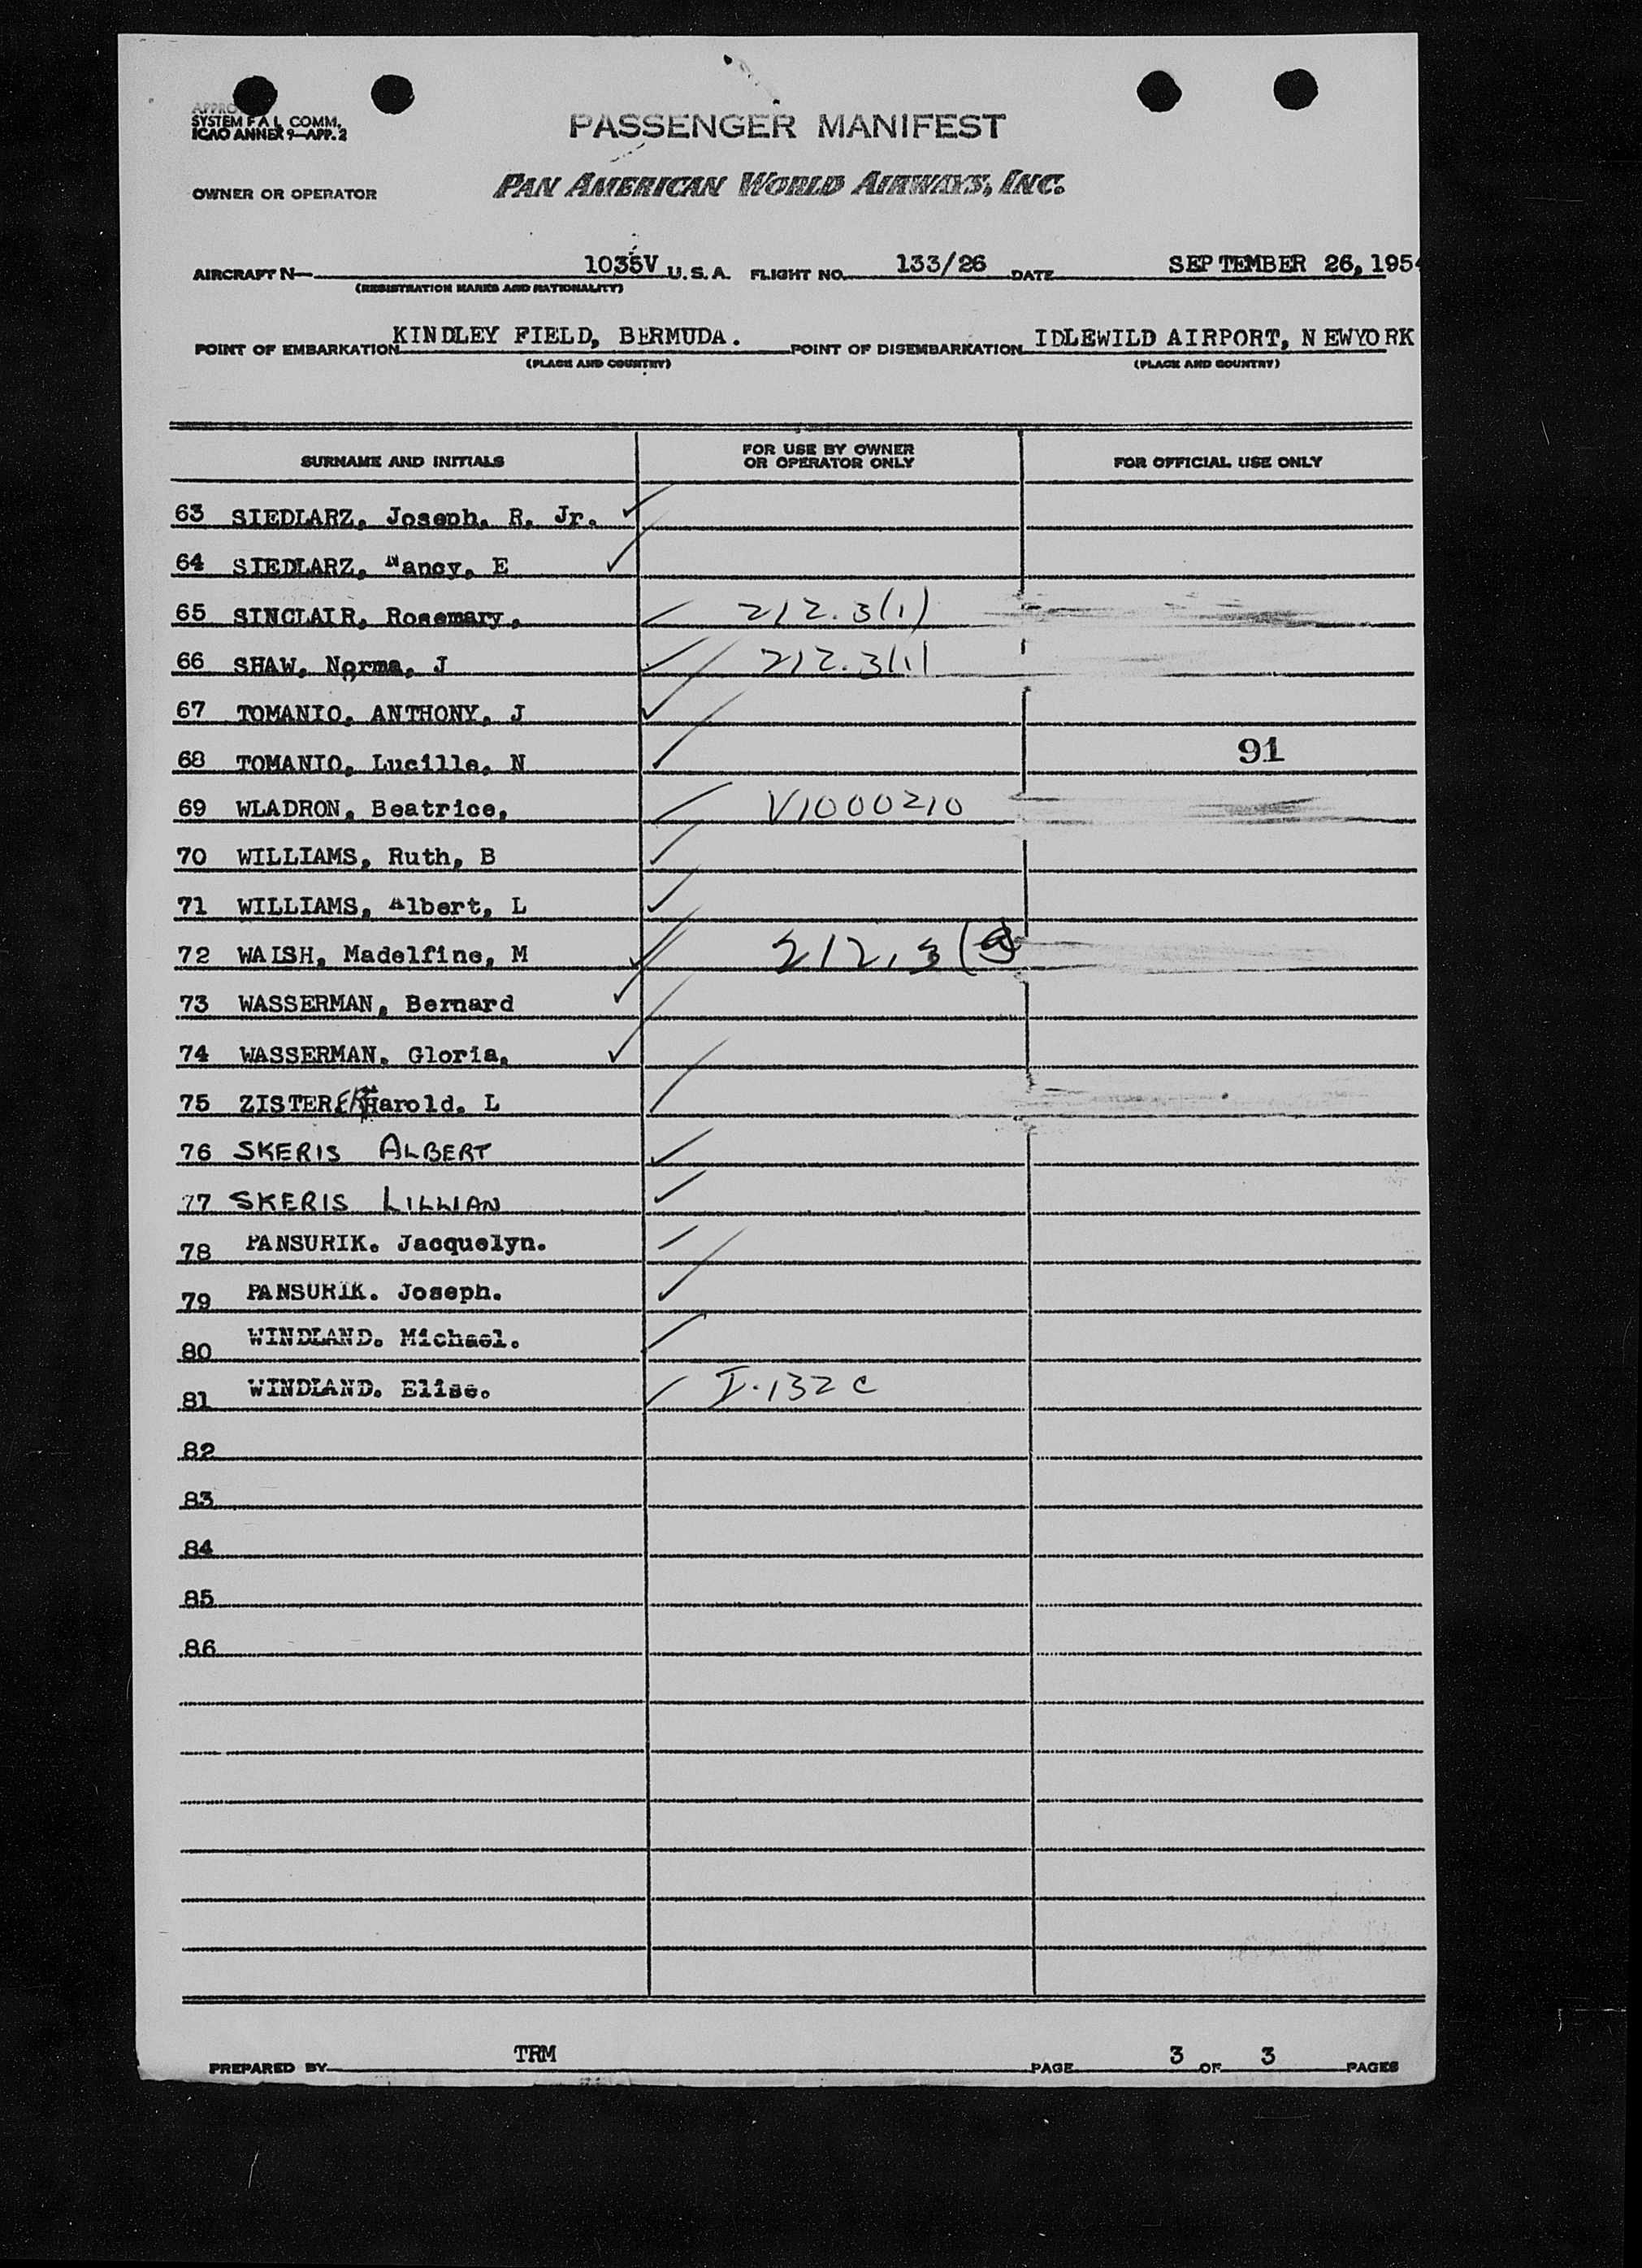 SYSTEM F A L COMM.
ICAO ANNEX 9—APP. 2
PASSENGER MANIFEST
OWNER OR OPERATOR PAN AMERICAN WORLD AIRWAYS, INC.
AIRCRAFT N— 1035V U. S. A. FLIGHT NO. 133/26 DATE SEPTEMBER 26, 195
(REGISTRATION MARKS AND NATIONALITY)
POINT OF EMBARKATION KINDLEY FIELD, BERMUDA. POINT OF DISEMBARKATION IDLEWILD AIRPORT, N EWYORK
(PLACE AND COUNTRY) (PLACE AND COUNTRY)
SURNAME AND INITIALS FOR USE BY OWNER OR OPERATOR ONLY FOR OFFICIAL USE ONLY
63 SIEDLARZ, Joseph, R. Jr.
64 SIEDLARZ, Nancy, E
65 SINCLAIR, Rosemary, 212.3(1)
66 SHAW, Norma, J 212.3(1)
67 TOMANIO, ANTHONY, J
68 TOMANIO, Lucille, N 91
69 WLADRON, Beatrice, V1000210
70 WILLIAMS, Ruth, B
71 WILLIAMS, Albert, L
72 WALSH, Madelfine, M 212.3
73 WASSERMAN, Bernard
74 WASSERMAN, Gloria,
75 Harold. L
76 SKERIS ALBERT
77 SKERIS LILLIAN
78 PANSURIK. Jacquelyn.
79 PANSURIK. Joseph.
80 WINDLAND. Michael.
81 WINDLAND. Elise. I-132 C
82
83
84
85
86
PREPARED BY TRM PAGE 3 OF 3 PAGES